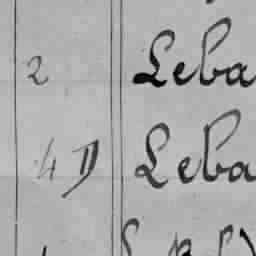 2 Leba
4 D Leba